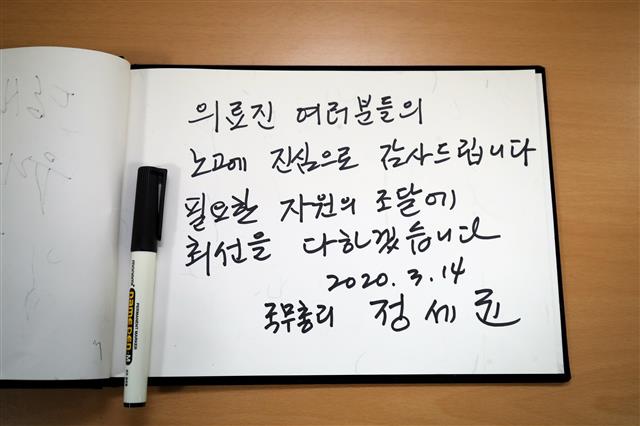 의료진 여러분들의
노고에 진심으로 감사드립니다
필요한 자원의 조달에
최선을 다하겠습니다
2020. 3. 14
국무총리 정세균
monami
namepen-M
PERMANENT MARKER